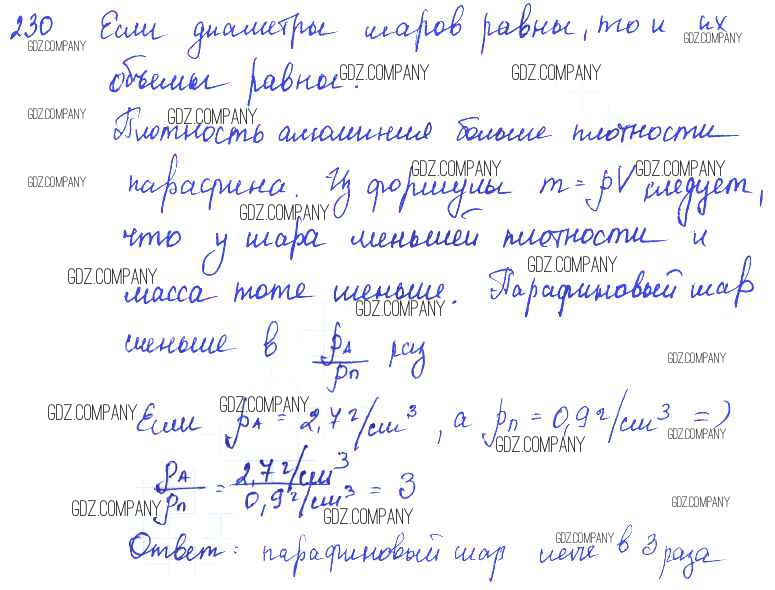 230 Если диаметры шаров равны, то и их
GDZ.COMPANY GDZ.COMPANY
объемы равны.
GDZ.COMPANY GDZ.COMPANY
GDZ.COMPANY GDZ.COMPANY
Плотность алюминия больше плотности
GDZ.COMPANY GDZ.COMPANY GDZ.COMPANY
парафина. Из формулы m = ρV следует,
GDZ.COMPANY
что у шара меньшей плотности и
GDZ.COMPANY GDZ.COMPANY
масса тоже меньше. Парафиновый шар
GDZ.COMPANY
меньше в ρА/ρп раз
GDZ.COMPANY
GDZ.COMPANY GDZ.COMPANY
Если ρА = 2,7 г/см³, а ρп = 0,9 г/см³ =>
GDZ.COMPANY GDZ.COMPANY
ρА/ρп = 2,7 г/см³ / 0,9 г/см³ = 3
GDZ.COMPANY GDZ.COMPANY GDZ.COMPANY
Ответ: парафиновый шар легче в 3 раза
GDZ.COMPANY